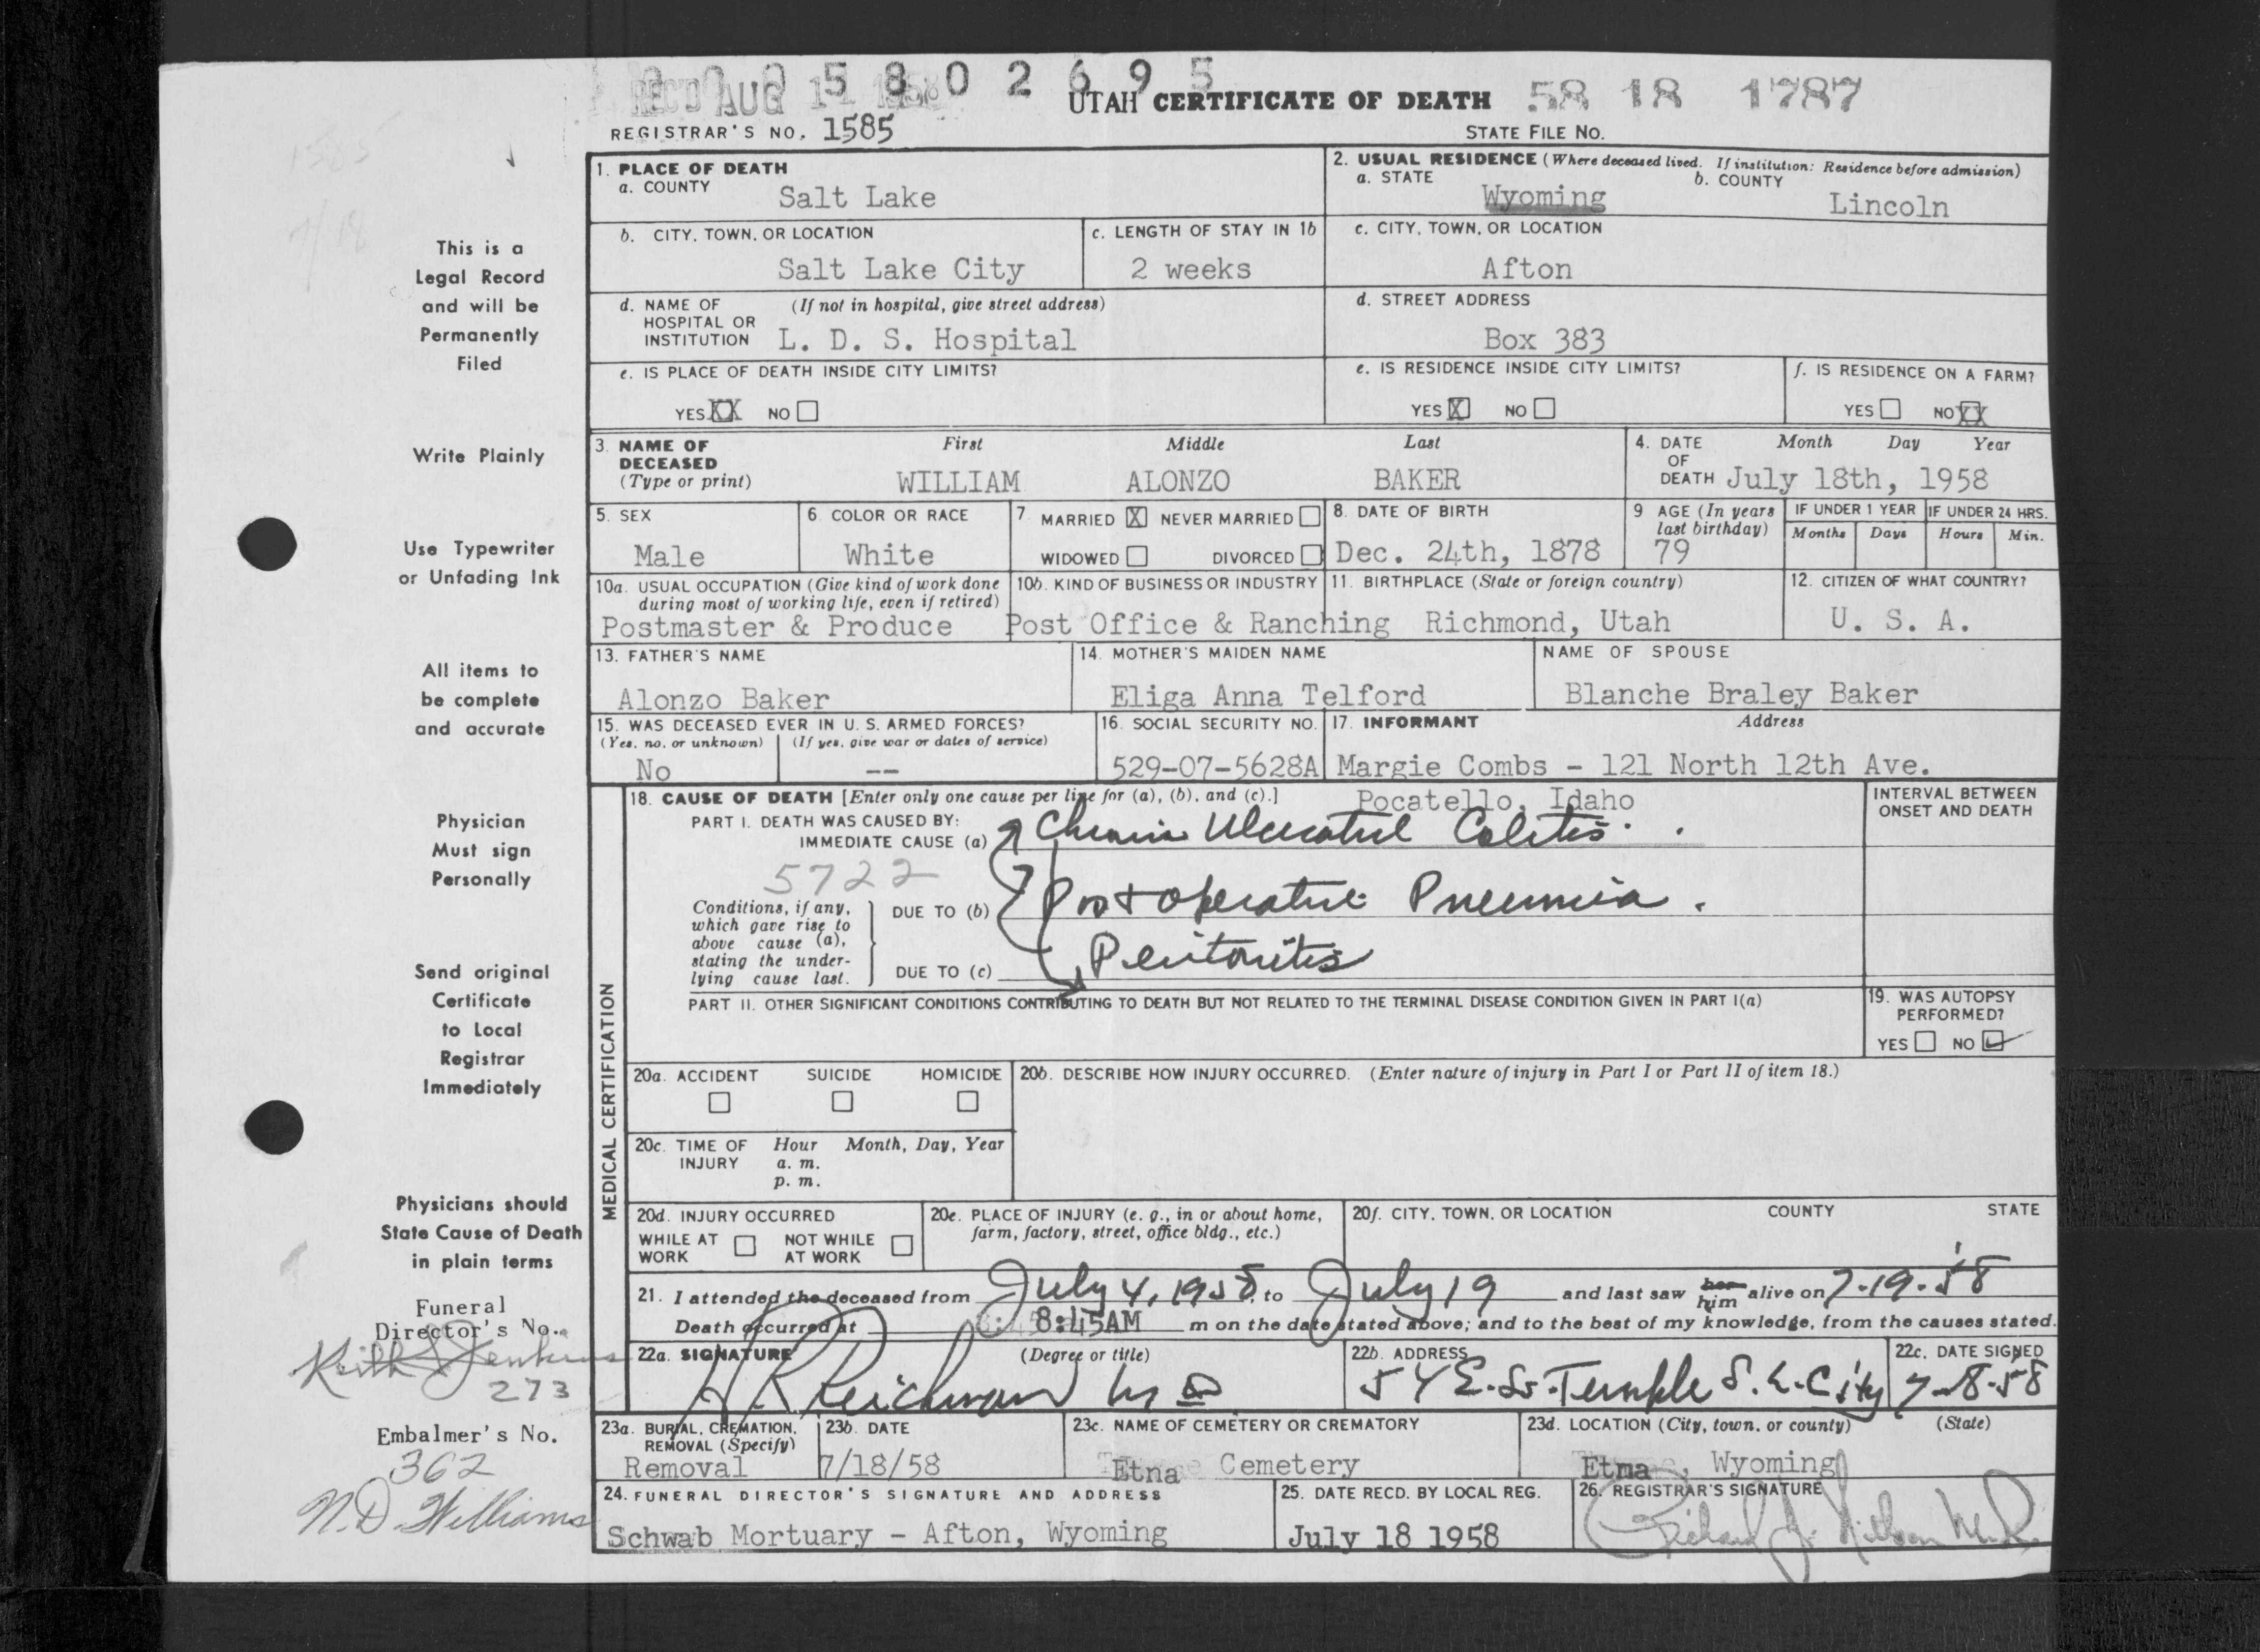 0 0 0 5 8 0 2 6 9 5
REC'D AUG 11 1958
UTAH CERTIFICATE OF DEATH 58 18 1787
REGISTRAR'S NO. 1585 STATE FILE NO.
1585
7/18
This is a
Legal Record
and will be
Permanently
Filed
Write Plainly
Use Typewriter
or Unfading Ink
All items to
be complete
and accurate
Physician
Must sign
Personally
Send original
Certificate
to Local
Registrar
Immediately
Physicians should
State Cause of Death
in plain terms
Funeral
Director's No.
Keith J Jenkins
273
Embalmer's No.
362
N.D. Williams
1. PLACE OF DEATH
a. COUNTY
Salt Lake
2. USUAL RESIDENCE (Where deceased lived. If institution: Residence before admission)
a. STATE b. COUNTY
Wyoming Lincoln
b. CITY, TOWN, OR LOCATION
Salt Lake City
c. LENGTH OF STAY IN 1b
2 weeks
c. CITY, TOWN, OR LOCATION
Afton
d. NAME OF (If not in hospital, give street address)
HOSPITAL OR
INSTITUTION L. D. S. Hospital
d. STREET ADDRESS
Box 383
e. IS PLACE OF DEATH INSIDE CITY LIMITS?
YES XX NO
e. IS RESIDENCE INSIDE CITY LIMITS?
YES X NO
f. IS RESIDENCE ON A FARM?
YES NO XX
3. NAME OF First Middle Last
DECEASED
(Type or print) WILLIAM ALONZO BAKER
4. DATE Month Day Year
OF
DEATH July 18th, 1958
5. SEX
Male
6. COLOR OR RACE
White
7. MARRIED X NEVER MARRIED
WIDOWED DIVORCED
8. DATE OF BIRTH
Dec. 24th, 1878
9 AGE (In years
last birthday)
79
IF UNDER 1 YEAR
Months Days
IF UNDER 24 HRS.
Hours Min.
10a. USUAL OCCUPATION (Give kind of work done
during most of working life, even if retired)
Postmaster & Produce
10b. KIND OF BUSINESS OR INDUSTRY
Post Office & Ranching
11. BIRTHPLACE (State or foreign country)
Richmond, Utah
12. CITIZEN OF WHAT COUNTRY?
U. S. A.
13. FATHER'S NAME
Alonzo Baker
14. MOTHER'S MAIDEN NAME
Eliga Anna Telford
NAME OF SPOUSE
Blanche Braley Baker
15. WAS DECEASED EVER IN U. S. ARMED FORCES?
(Yes, no, or unknown) (If yes, give war or dates of service)
No --
16. SOCIAL SECURITY NO.
529-07-5628A
17. INFORMANT Address
Margie Combs - 121 North 12th Ave.
Pocatello, Idaho
MEDICAL CERTIFICATION
18. CAUSE OF DEATH [Enter only one cause per line for (a), (b), and (c).]
PART I. DEATH WAS CAUSED BY:
IMMEDIATE CAUSE (a) Chronic Ulcerative Colitis.
5722
Conditions, if any,
which gave rise to
above cause (a),
stating the under-
lying cause last.
DUE TO (b) Post operative Pneumonia.
DUE TO (c) Peritonitis
INTERVAL BETWEEN
ONSET AND DEATH
PART II. OTHER SIGNIFICANT CONDITIONS CONTRIBUTING TO DEATH BUT NOT RELATED TO THE TERMINAL DISEASE CONDITION GIVEN IN PART I(a)
19. WAS AUTOPSY
PERFORMED?
YES NO ✓
20a. ACCIDENT SUICIDE HOMICIDE
20b. DESCRIBE HOW INJURY OCCURRED. (Enter nature of injury in Part I or Part II of item 18.)
20c. TIME OF Hour Month, Day, Year
INJURY a. m.
p. m.
20d. INJURY OCCURRED
WHILE AT NOT WHILE
WORK AT WORK
20e. PLACE OF INJURY (e. g., in or about home,
farm, factory, street, office bldg., etc.)
20f. CITY, TOWN, OR LOCATION COUNTY STATE
21. I attended the deceased from July 4, 1958, to July 19 and last saw her him alive on 7-19-58
Death occurred at 8:45AM m on the date stated above; and to the best of my knowledge, from the causes stated.
22a. SIGNATURE (Degree or title)
H R Reichman M D
22b. ADDRESS
54 E. So. Temple S. L. City
22c. DATE SIGNED
7-18-58
23a. BURIAL, CREMATION,
REMOVAL (Specify)
Removal
23b. DATE
7/18/58
23c. NAME OF CEMETERY OR CREMATORY
Etna Cemetery
23d. LOCATION (City, town, or county) (State)
Etna, Wyoming
24. FUNERAL DIRECTOR'S SIGNATURE AND ADDRESS
Schwab Mortuary - Afton, Wyoming
25. DATE RECD. BY LOCAL REG.
July 18 1958
26. REGISTRAR'S SIGNATURE